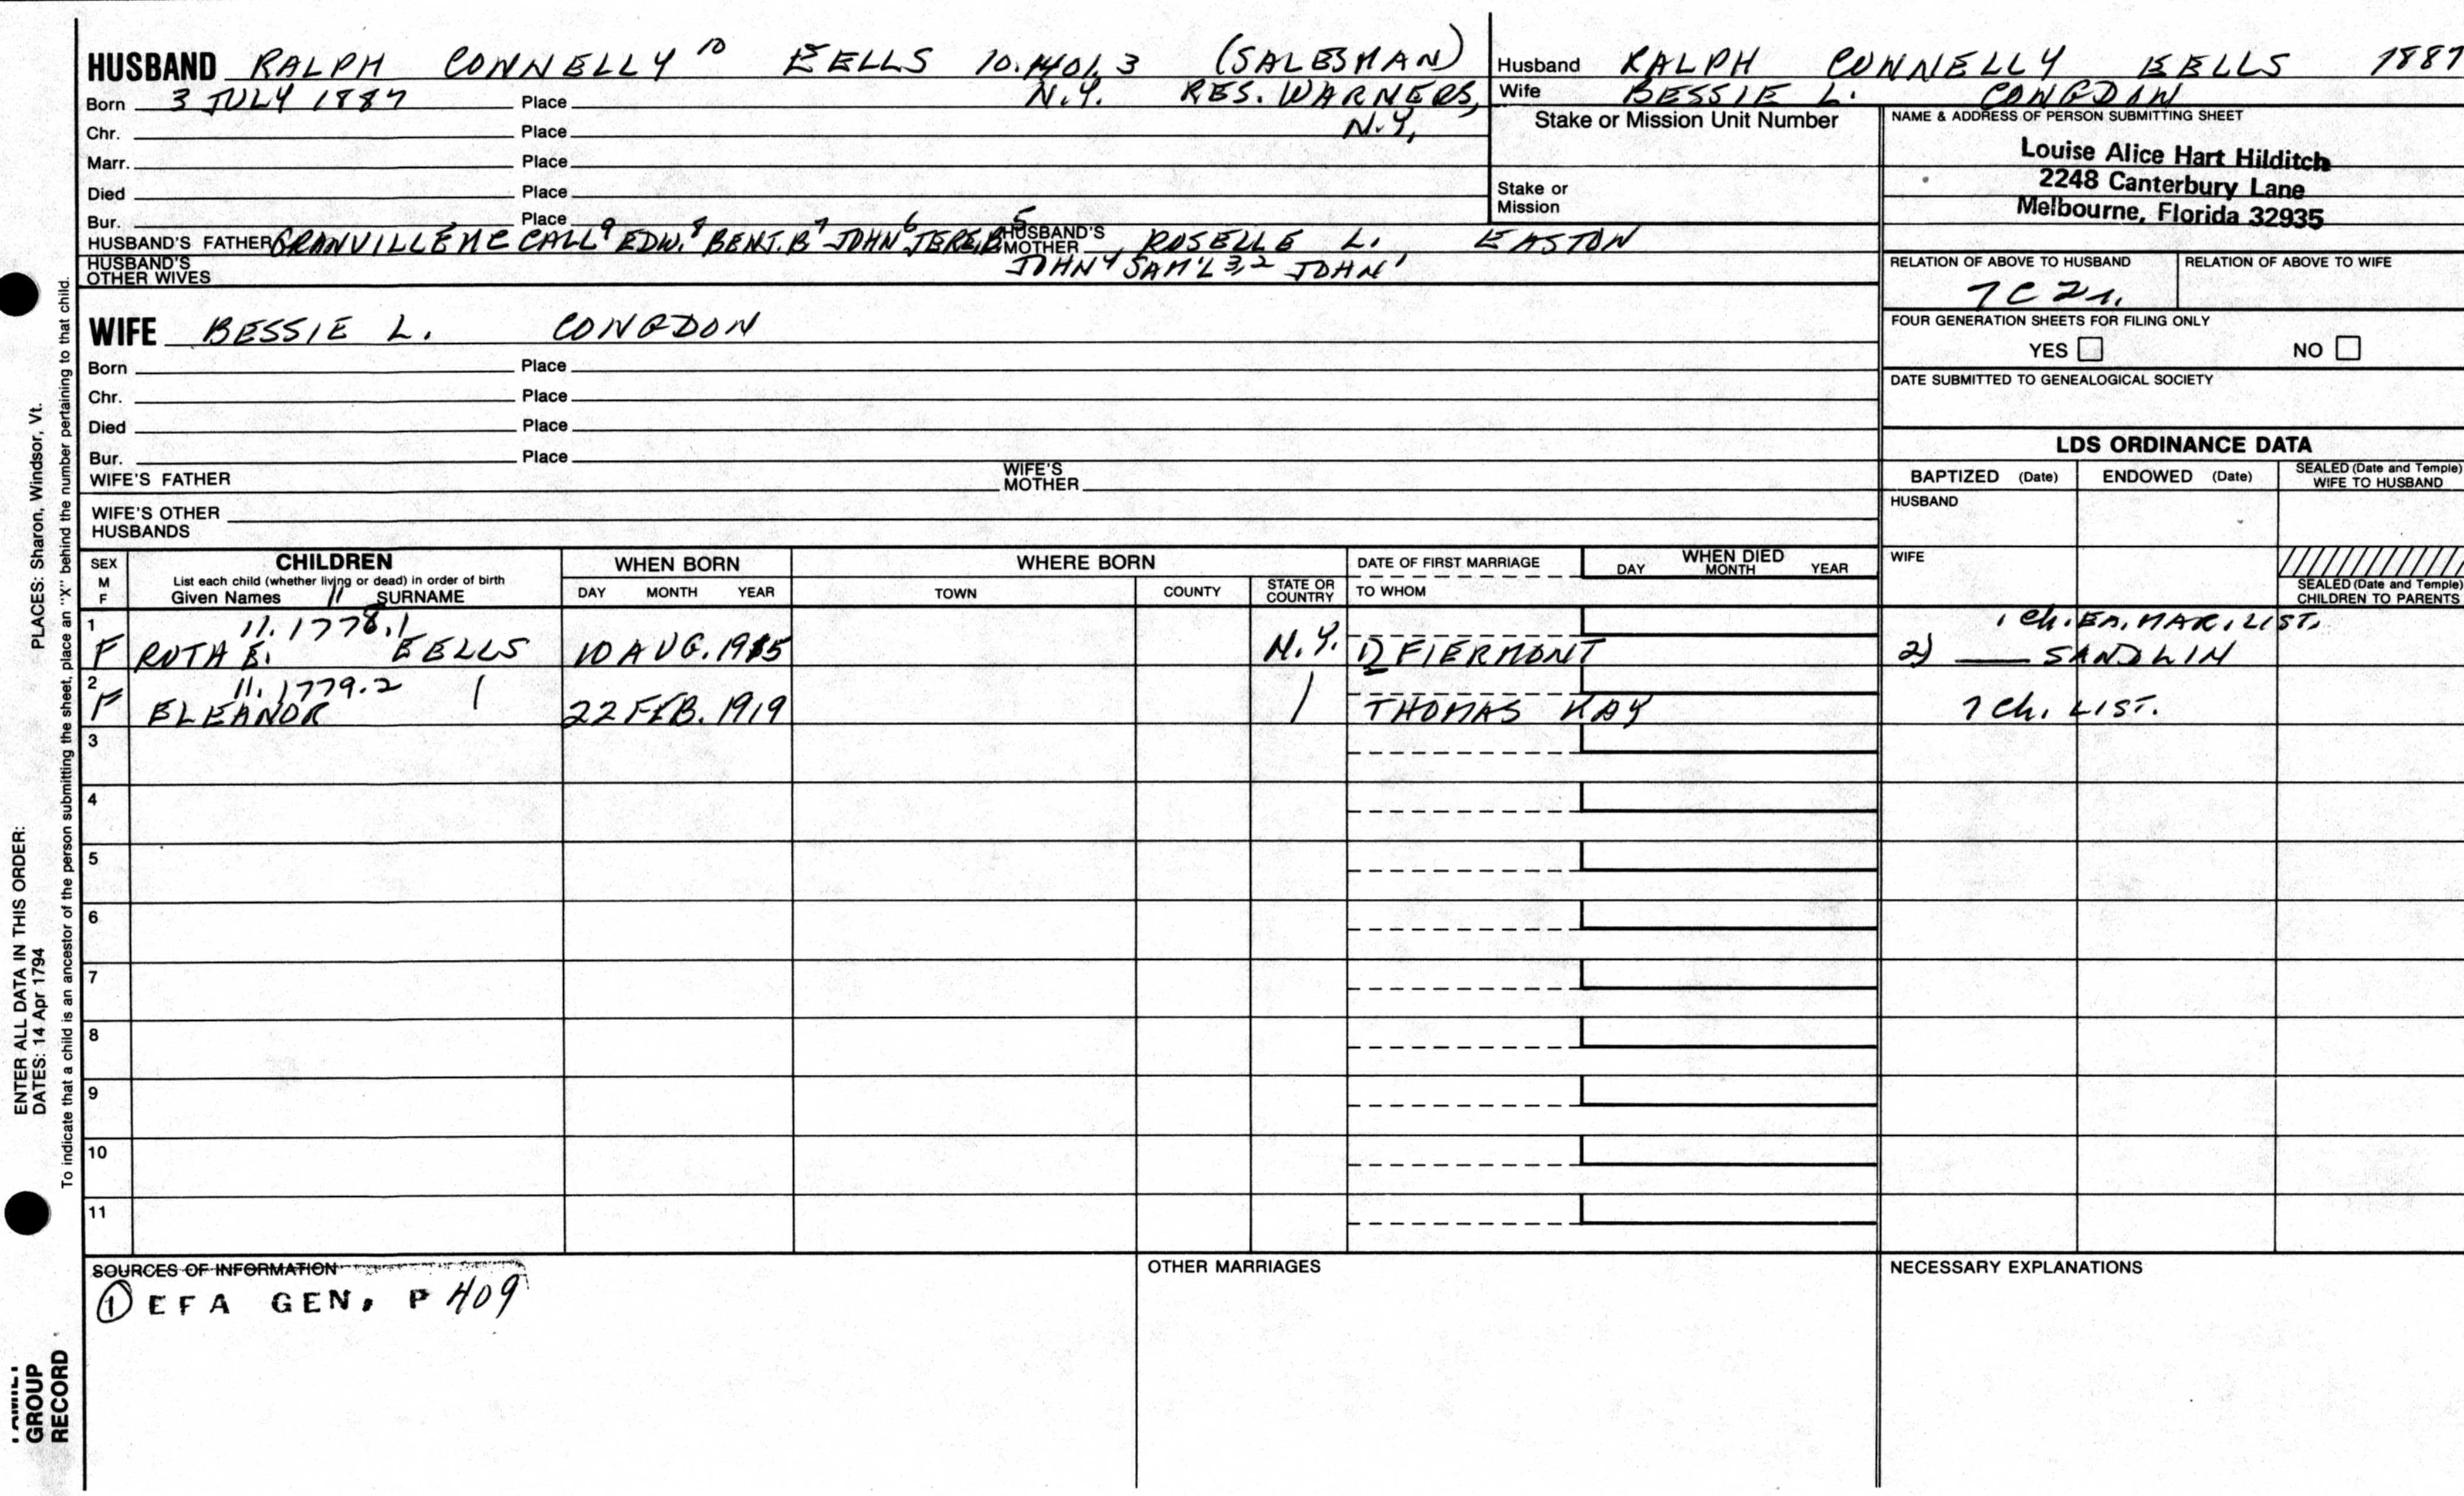 HUSBAND RALPH CONNELLY 10 EELLS 10.1401.3 (SALESMAN)
Born 3 JULY 1887 Place N.Y. RES. WARNERS,
Chr. Place N.Y.
Marr. Place
Died Place
Bur. Place
HUSBAND'S FATHER GRANVILLE MC CALL 9 EDW. 8 BENJ. B 7 JOHN 6 JERE. B 5 HUSBAND'S MOTHER ROSELLE L. EASTON
HUSBAND'S OTHER WIVES JOHN 4 SAM'L 3,2 JOHN 1
Husband RALPH CONNELLY EELLS 1887
Wife BESSIE L. CONGDON
Stake or Mission Unit Number
Stake or
Mission
NAME & ADDRESS OF PERSON SUBMITTING SHEET
Louise Alice Hart Hilditch
2248 Canterbury Lane
Melbourne, Florida 32935
RELATION OF ABOVE TO HUSBAND RELATION OF ABOVE TO WIFE
7C 2r.
FOUR GENERATION SHEETS FOR FILING ONLY
YES NO
DATE SUBMITTED TO GENEALOGICAL SOCIETY
WIFE BESSIE L. CONGDON
Born Place
Chr. Place
Died Place
Bur. Place
WIFE'S FATHER WIFE'S MOTHER
WIFE'S OTHER
HUSBANDS
LDS ORDINANCE DATA
BAPTIZED (Date) ENDOWED (Date) SEALED (Date and Temple) WIFE TO HUSBAND
HUSBAND
WIFE
SEALED (Date and Temple) CHILDREN TO PARENTS
SEX M F
CHILDREN
List each child (whether living or dead) in order of birth
Given Names 11 SURNAME
WHEN BORN
DAY MONTH YEAR
WHERE BORN
TOWN COUNTY STATE OR COUNTRY
DATE OF FIRST MARRIAGE
TO WHOM
WHEN DIED
DAY MONTH YEAR
1 11.1778.1 1 Ch. EA. MAR. LIST.
F RUTH E. EELLS 10 AUG. 1915 N.Y. 1) FIERMONT 2) SANDLIN
2 11.1779.2
F ELEANOR 22 FEB. 1919 THOMAS KAY 7 Ch. LIST.
3
4
5
6
7
8
9
10
11
SOURCES OF INFORMATION
1 EFA GEN. P 409
OTHER MARRIAGES
NECESSARY EXPLANATIONS
PLACES: Sharon, Windsor, Vt.
To indicate that a child is an ancestor of the person submitting the sheet, place an "X" behind the number pertaining to that child.
ENTER ALL DATA IN THIS ORDER:
DATES: 14 Apr 1794
FAMILY
GROUP
RECORD